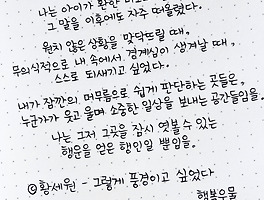 나는 아이가 환한
그 말을 이후에도 자주 떠올렸다.
원치 않은 상황을 맞닥뜨릴 때,
무의식적으로 내 속에서 경계심이 생겨날 때,
스스로 되새기고 싶었다.
내가 잠깐의 머무름으로 쉽게 판단하는 곳들은,
누군가가 웃고 울며 소중한 일상을 보내는 공간들임을.
나는 그저 그곳을 잠시 엿볼 수 있는
행운을 얻은 행인일 뿐임을.
©황세원 - 그렇게 풍경이고 싶었다
행복우물